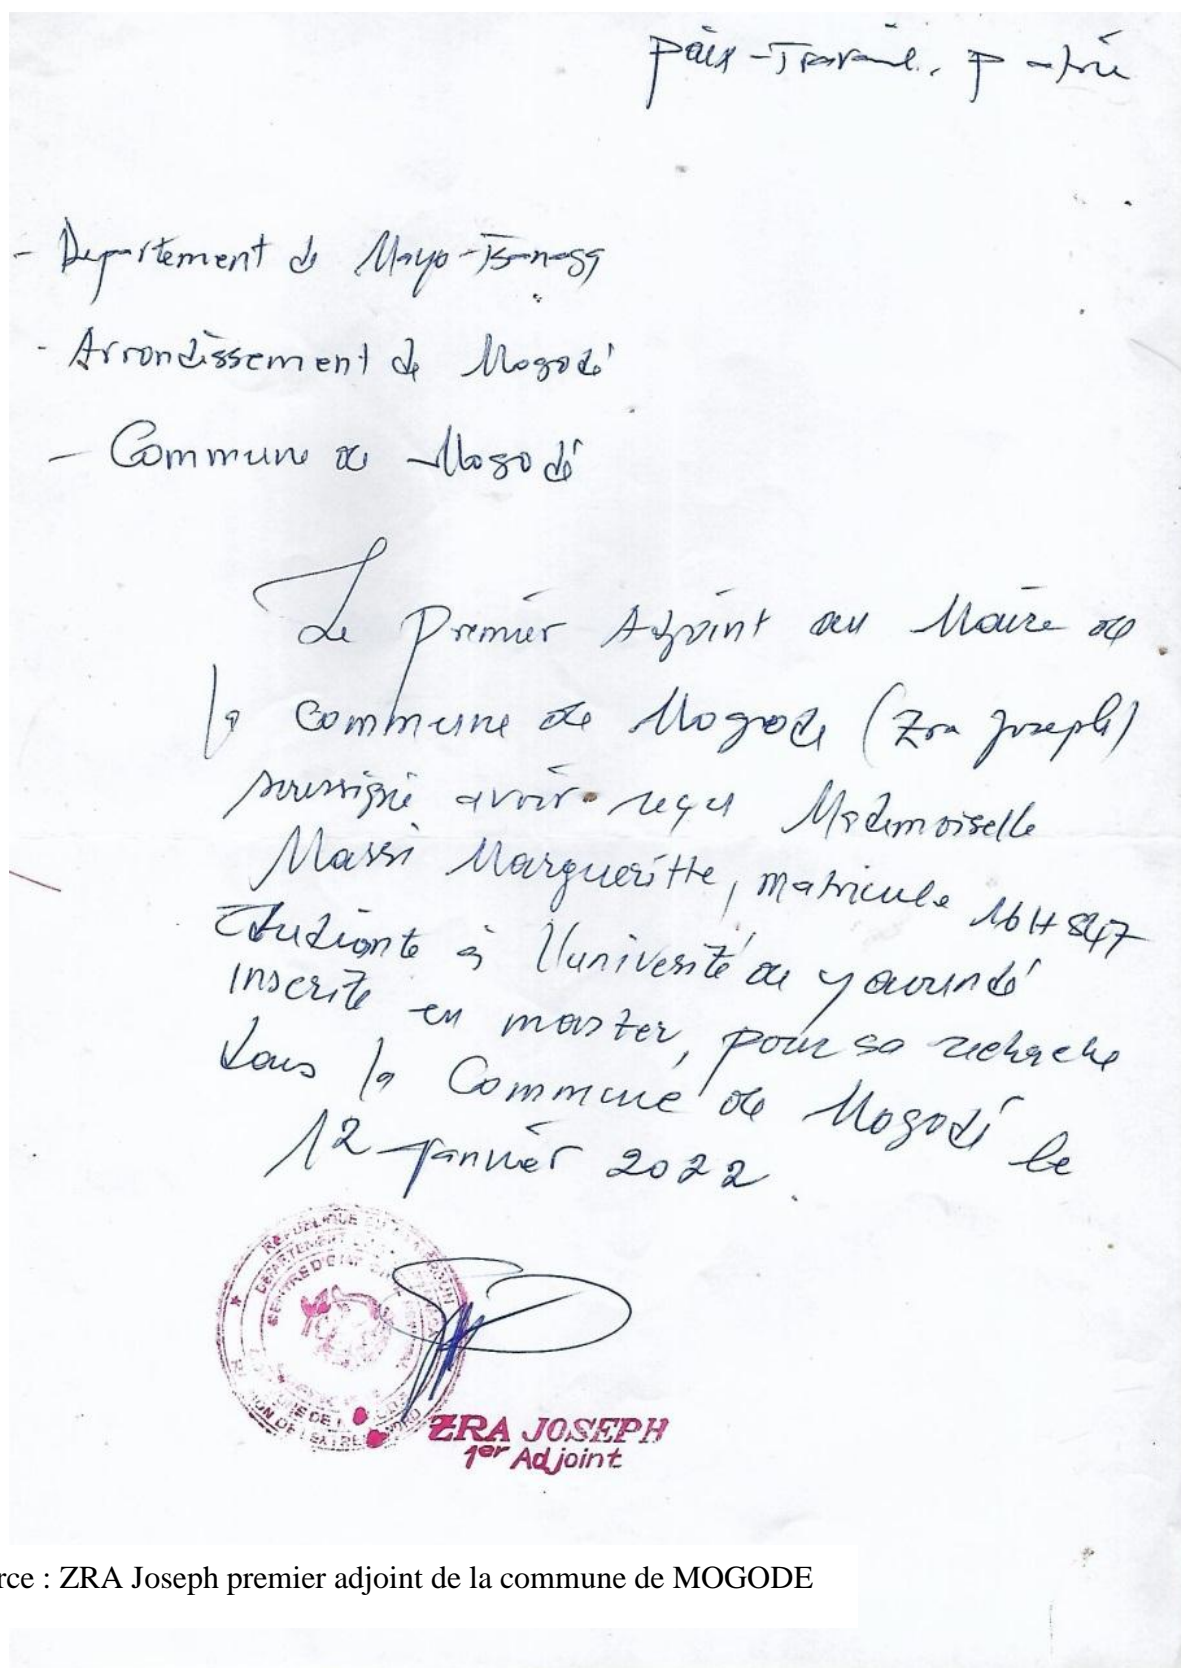 Paix - Travail, Patrie
- Departement de Mayo-Tsanaga
- Arrondissement de Mogodé
- Commune de Mogodé
Le premier Adjoint au Maire de
la commune de Mogode (Zra Joseph)
soussigné avoir reçu Mademoiselle
Massi Margueritte, matricule 16H847
Etudiante à l'université de yaoundé
inscrite en master, pour sa recherche
dans la Commune de Mogodé le
12 janvier 2022.
REPUBLIQUE DU
DEPARTEMENT
CENTRE D'
ZRA JOSEPH
1er Adjoint
rce : ZRA Joseph premier adjoint de la commune de MOGODE